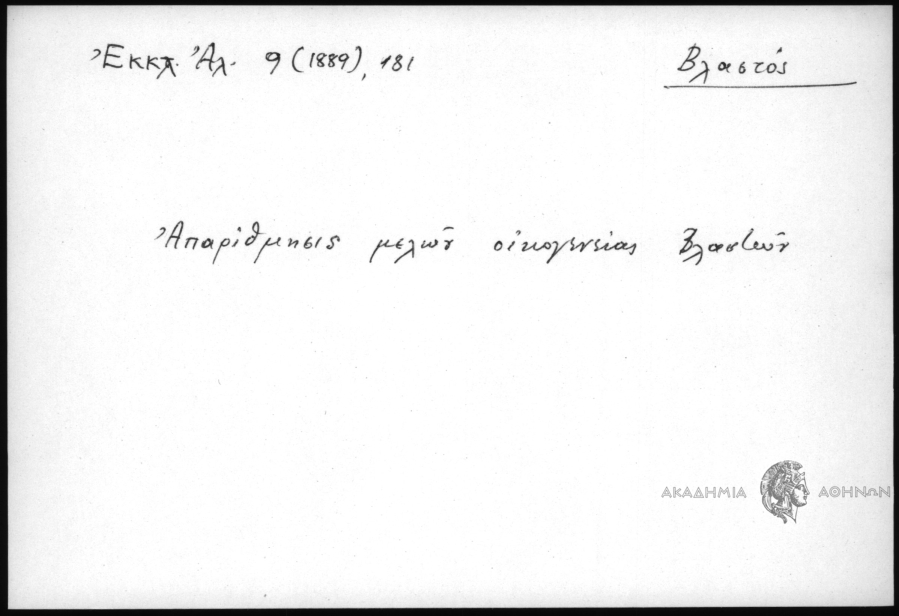 Ἐκκλ. Ἀλ. 9 (1889), 181
Βλαστός
Ἀπαρίθμησις μελῶν οἰκογενείας Βλαστῶν
ΑΚΑΔΗΜΙΑ ΑΘΗΝΩΝ